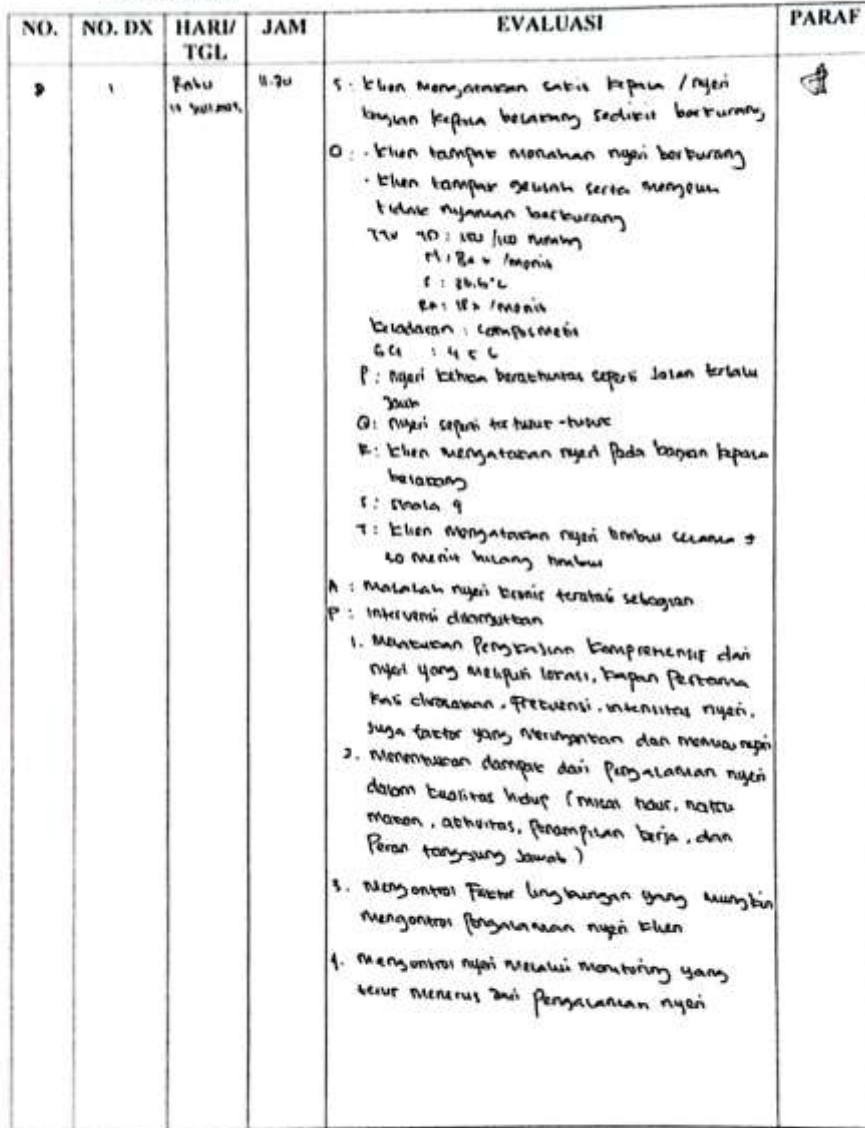 NO. NO. DX HARI/ TGL JAM EVALUASI PARAF
1 Rabu
S : Klien mengatakan sakit kepala / nyeri
bagian kepala belakang sedikit berkurang
O : - Klien tampak menahan nyeri berkurang
- Klien tampak gelisah serta mengeluh
tidak nyaman berkurang
TTV TD : /110 mmHg
N : x /menit
S : 36.6°C
RR : 18x /menit
Kesadaran : composmetis
GCS : 4 5 6
P : nyeri ketika beraktivitas seperti jalan terlalu
jauh
Q : nyeri seperti tertusuk-tusuk
R : Klien mengatakan nyeri pada bagian kepala
belakang
S : skala
T : Klien mengatakan nyeri timbul selama ±
menit hilang timbul
A : Masalah nyeri kronis teratasi sebagian
P : Intervensi dilanjutkan
1. Melakukan Pengkajian komprehensif dari
nyeri yang meliputi lokasi, kapan pertama
kali dirasakan, frekuensi, intensitas nyeri,
juga faktor yang meringankan dan memicu nyeri
2. Menentukan dampak dari pengalaman nyeri
dalam kualitas hidup (misal tidur, nafsu
makan, aktivitas, penampilan kerja, dan
Peran tanggung jawab)
3. Mengontrol Faktor lingkungan yang mungkin
mengontrol pengalaman nyeri klien
4. Mengontrol nyeri melalui monitoring yang
terus menerus dari pengalaman nyeri